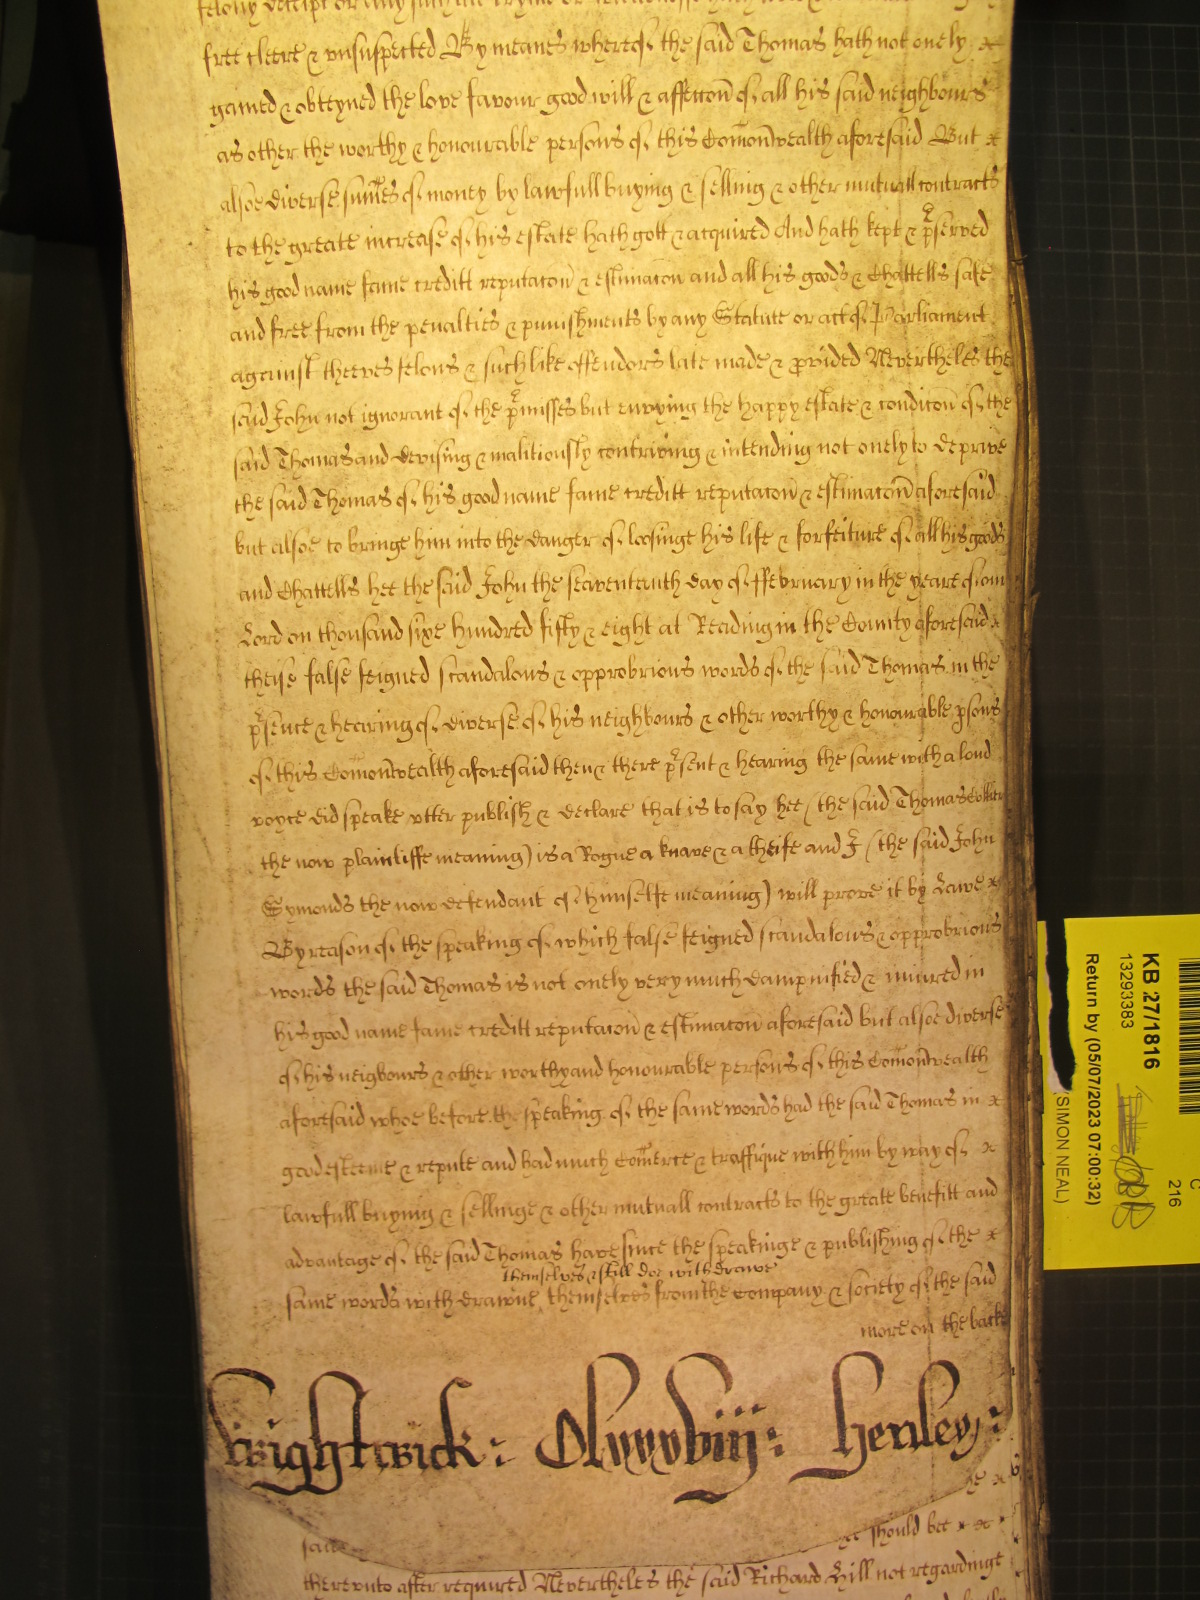 felony deceipt or any such
free cleere & unsuspected By meanes whereof the said Thomas hath not onely
gained & obteyned the love favour good will & affeccon of all his said neighbours
as other the worthy & honourable persons of this Comonwealth aforesaid But
alsoe diverse summes of money by lawfull buying & selling & other mutuall contracts
to the greate increase of his estate hath gott & acquired And hath kept & pserved
his good name fame creditt reputacon & estimacon and all his goods & Chattells safe
and free from the penalties & punishments by any Statute or act of Parliament
against theeves felons & such like offendors late made & provided Nevertheles the
said John not ignorant of the pmisses but envying the happy estate & condicon of the
said Thomas and devising & malitiously contriving & intending not onely to deprive
the said Thomas of his good name fame creditt reputacon & estimacon aforesaid
but alsoe to bringe him into the danger of loosinge his life & forfeiture of all his goods
and Chattells hee the said John the seaventeenth day of ffebruary in the yeare of our
Lord on thousand sixe hundred fifty & eight at Reading in the County aforesaid
theise false feigned scandalous & opprobrious words of the said Thomas in the
psence & hearing of diverse of his neighbours & other worthy & honourable psons
of this Comonwealth aforesaid then & there psent & hearing the same with a loud
voyce did speake utter publish & declare that is to say hee (the said Thomas Collier
the now plaintiffe meaning) is a Rogue a knave & a theife and I (the said John
Symonds the now defendant of himselfe meaning) will prove it by Lawe
By reason of the speaking of which false feigned scandalous & opprobrious
words the said Thomas is not onely very much dampnified & iniured in
his good name fame creditt reputacon & estimacon aforesaid but alsoe diverse
of his neigbours & other worthy and honourable persons of this Comonwealth
aforesaid whoe before the speaking of the same words had the said Thomas in
good esteeme & repute and had much Comerce & traffique with him by way of
lawfull buying & sellinge & other mutuall contracts to the greate benefitt and
advantage of the said Thomas have since the speakinge & publishing of the
themselves & still doe withdrawe
same words withdrawne themselves from the company & society of the said
more on the backe
Wrightwick: Clxxxviij: Henley:
said
should bee
thereunto after required Nevertheles the said Richard Hill not regardinge
KB 27/1816
13293383
Return by (05/07/2023 07:00:32)
(SIMON NEAL)
C
216